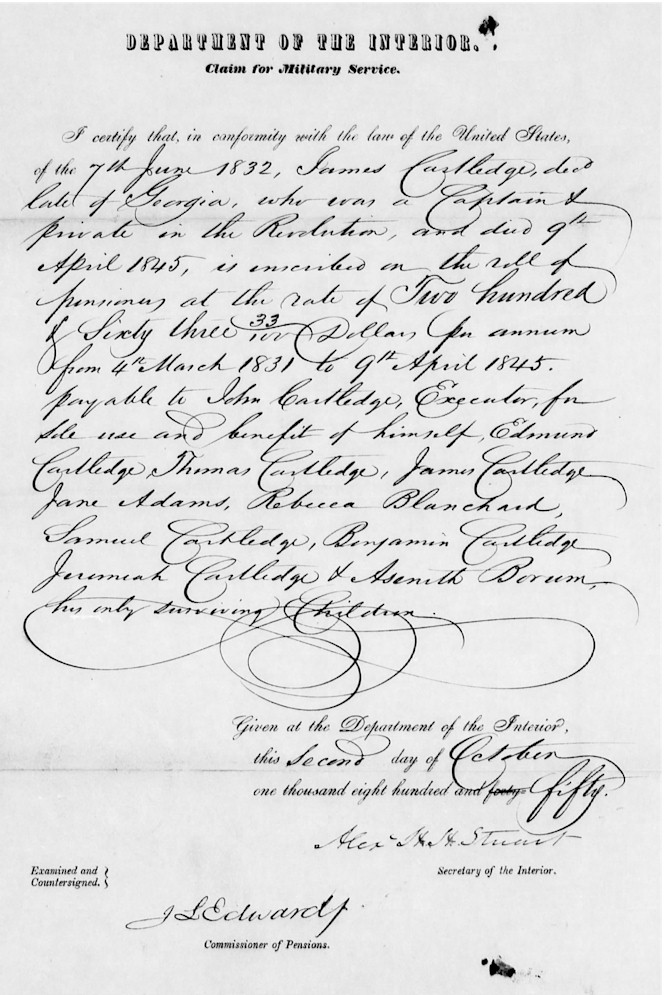 DEPARTMENT OF THE INTERIOR.
Claim for Military Service.
I certify that, in conformity with the law of the United States,
of the 7th June 1832, James Cartledge, decd
late of Georgia, who was a Captain &
private in the Revolution, and died 9th
April 1845, is inscribed on the roll of
pensioners at the rate of Two hundred
& Sixty three 33/100 Dollars per annum
from 4th March 1831 to 9th April 1845.
payable to John Cartledge, Executor, for
sole use and benefit of himself, Edmund
Cartledge, Thomas Cartledge, James Cartledge
Jane Adams, Rebecca Blanchard,
Samuel Cartledge, Benjamin Cartledge
Jeremiah Cartledge & Asenith Borum,
his only surviving Children.
Given at the Department of the Interior,
this Second day of October
one thousand eight hundred and forty fifty.
Alex H. H. Stuart
Secretary of the Interior.
Examined and
Countersigned,
J L Edwards
Commissioner of Pensions.